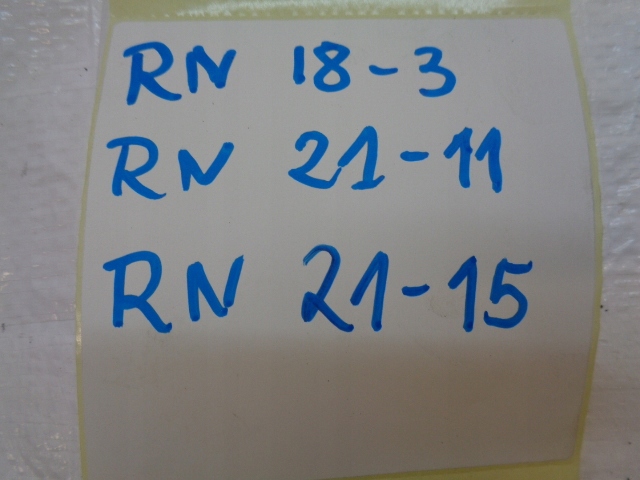 RN 18-3
RN 21-11
RN 21-15